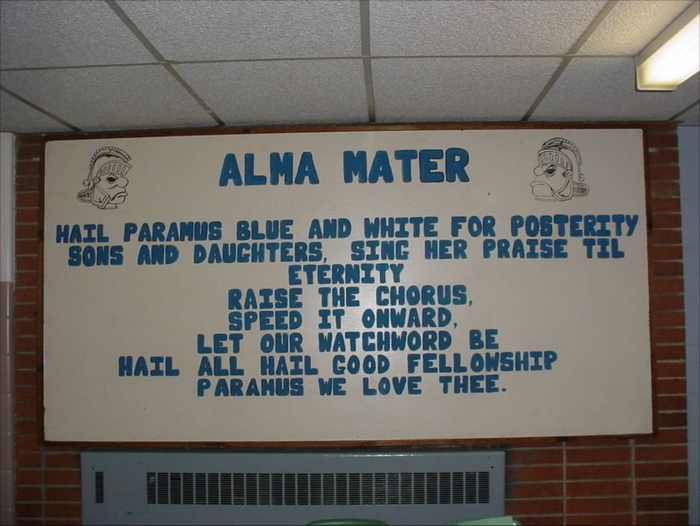 ALMA MATER
HAIL PARAMUS BLUE AND WHITE FOR POSTERITY
SONS AND DAUGHTERS, SING HER PRAISE TIL
ETERNITY
RAISE THE CHORUS,
SPEED IT ONWARD,
LET OUR WATCHWORD BE
HAIL ALL HAIL GOOD FELLOWSHIP
PARAMUS WE LOVE THEE.